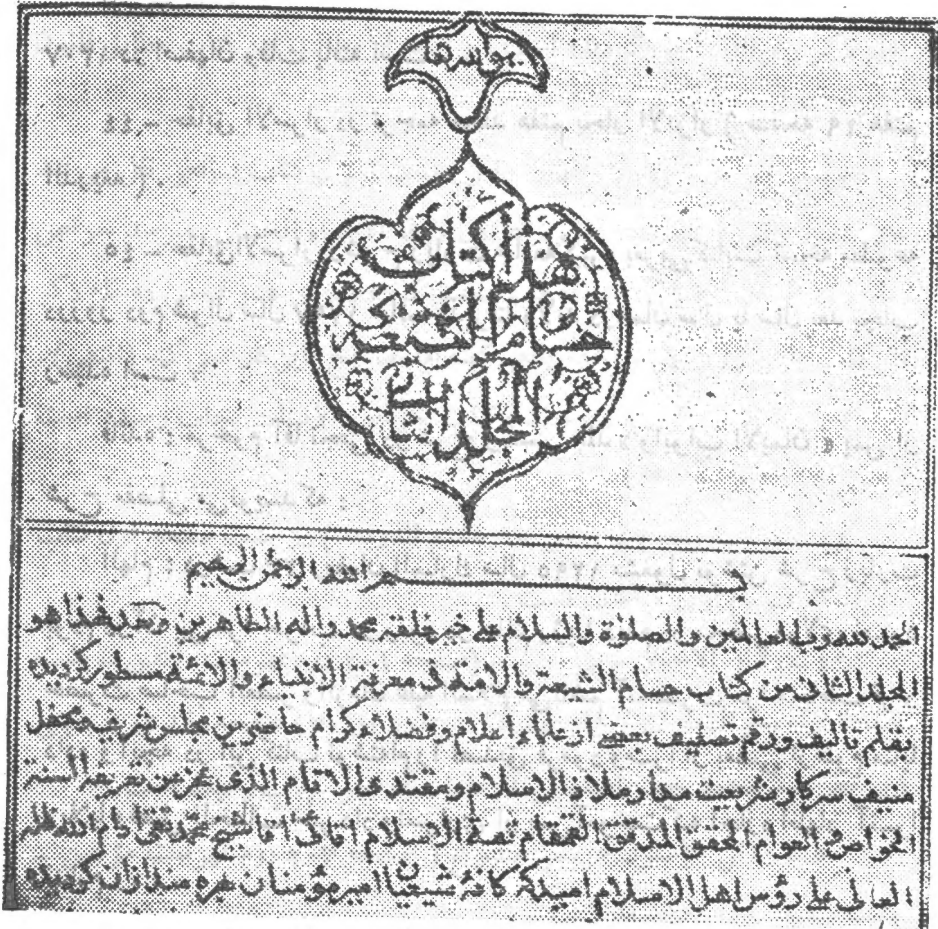 هو الله تعالى
هذا كتاب
حسام الشيعة
المجلد الثاني
بسم الله الرحمن الرحيم
الحمد لله رب العالمين والصلوة والسلام على خير خلقه محمد وآله الطاهرين وبعد فهذا هو
المجلد الثانى من كتاب حسام الشيعة والامة فى معرفة الانبياء والائمة مسطور كرديده
بقلم تاليف ورقم تصنيف بعضى از علماء اعلام وفضلاء كرام حاضرين مجلس شريف ومحفل
منيف سركار شريعت مدار ملاذ الاسلام ومقتدى الانام الذى عجز من تعريفه السنة
الخواص والعوام المحقق المدقق القمقام ثقة الاسلام اقائى اقا شيخ محمد تقى ادام الله ظله
العالى على رؤس اهل الاسلام اميد كه كافۀ شيعيان امير مؤمنان بهره مند ازان كرديده